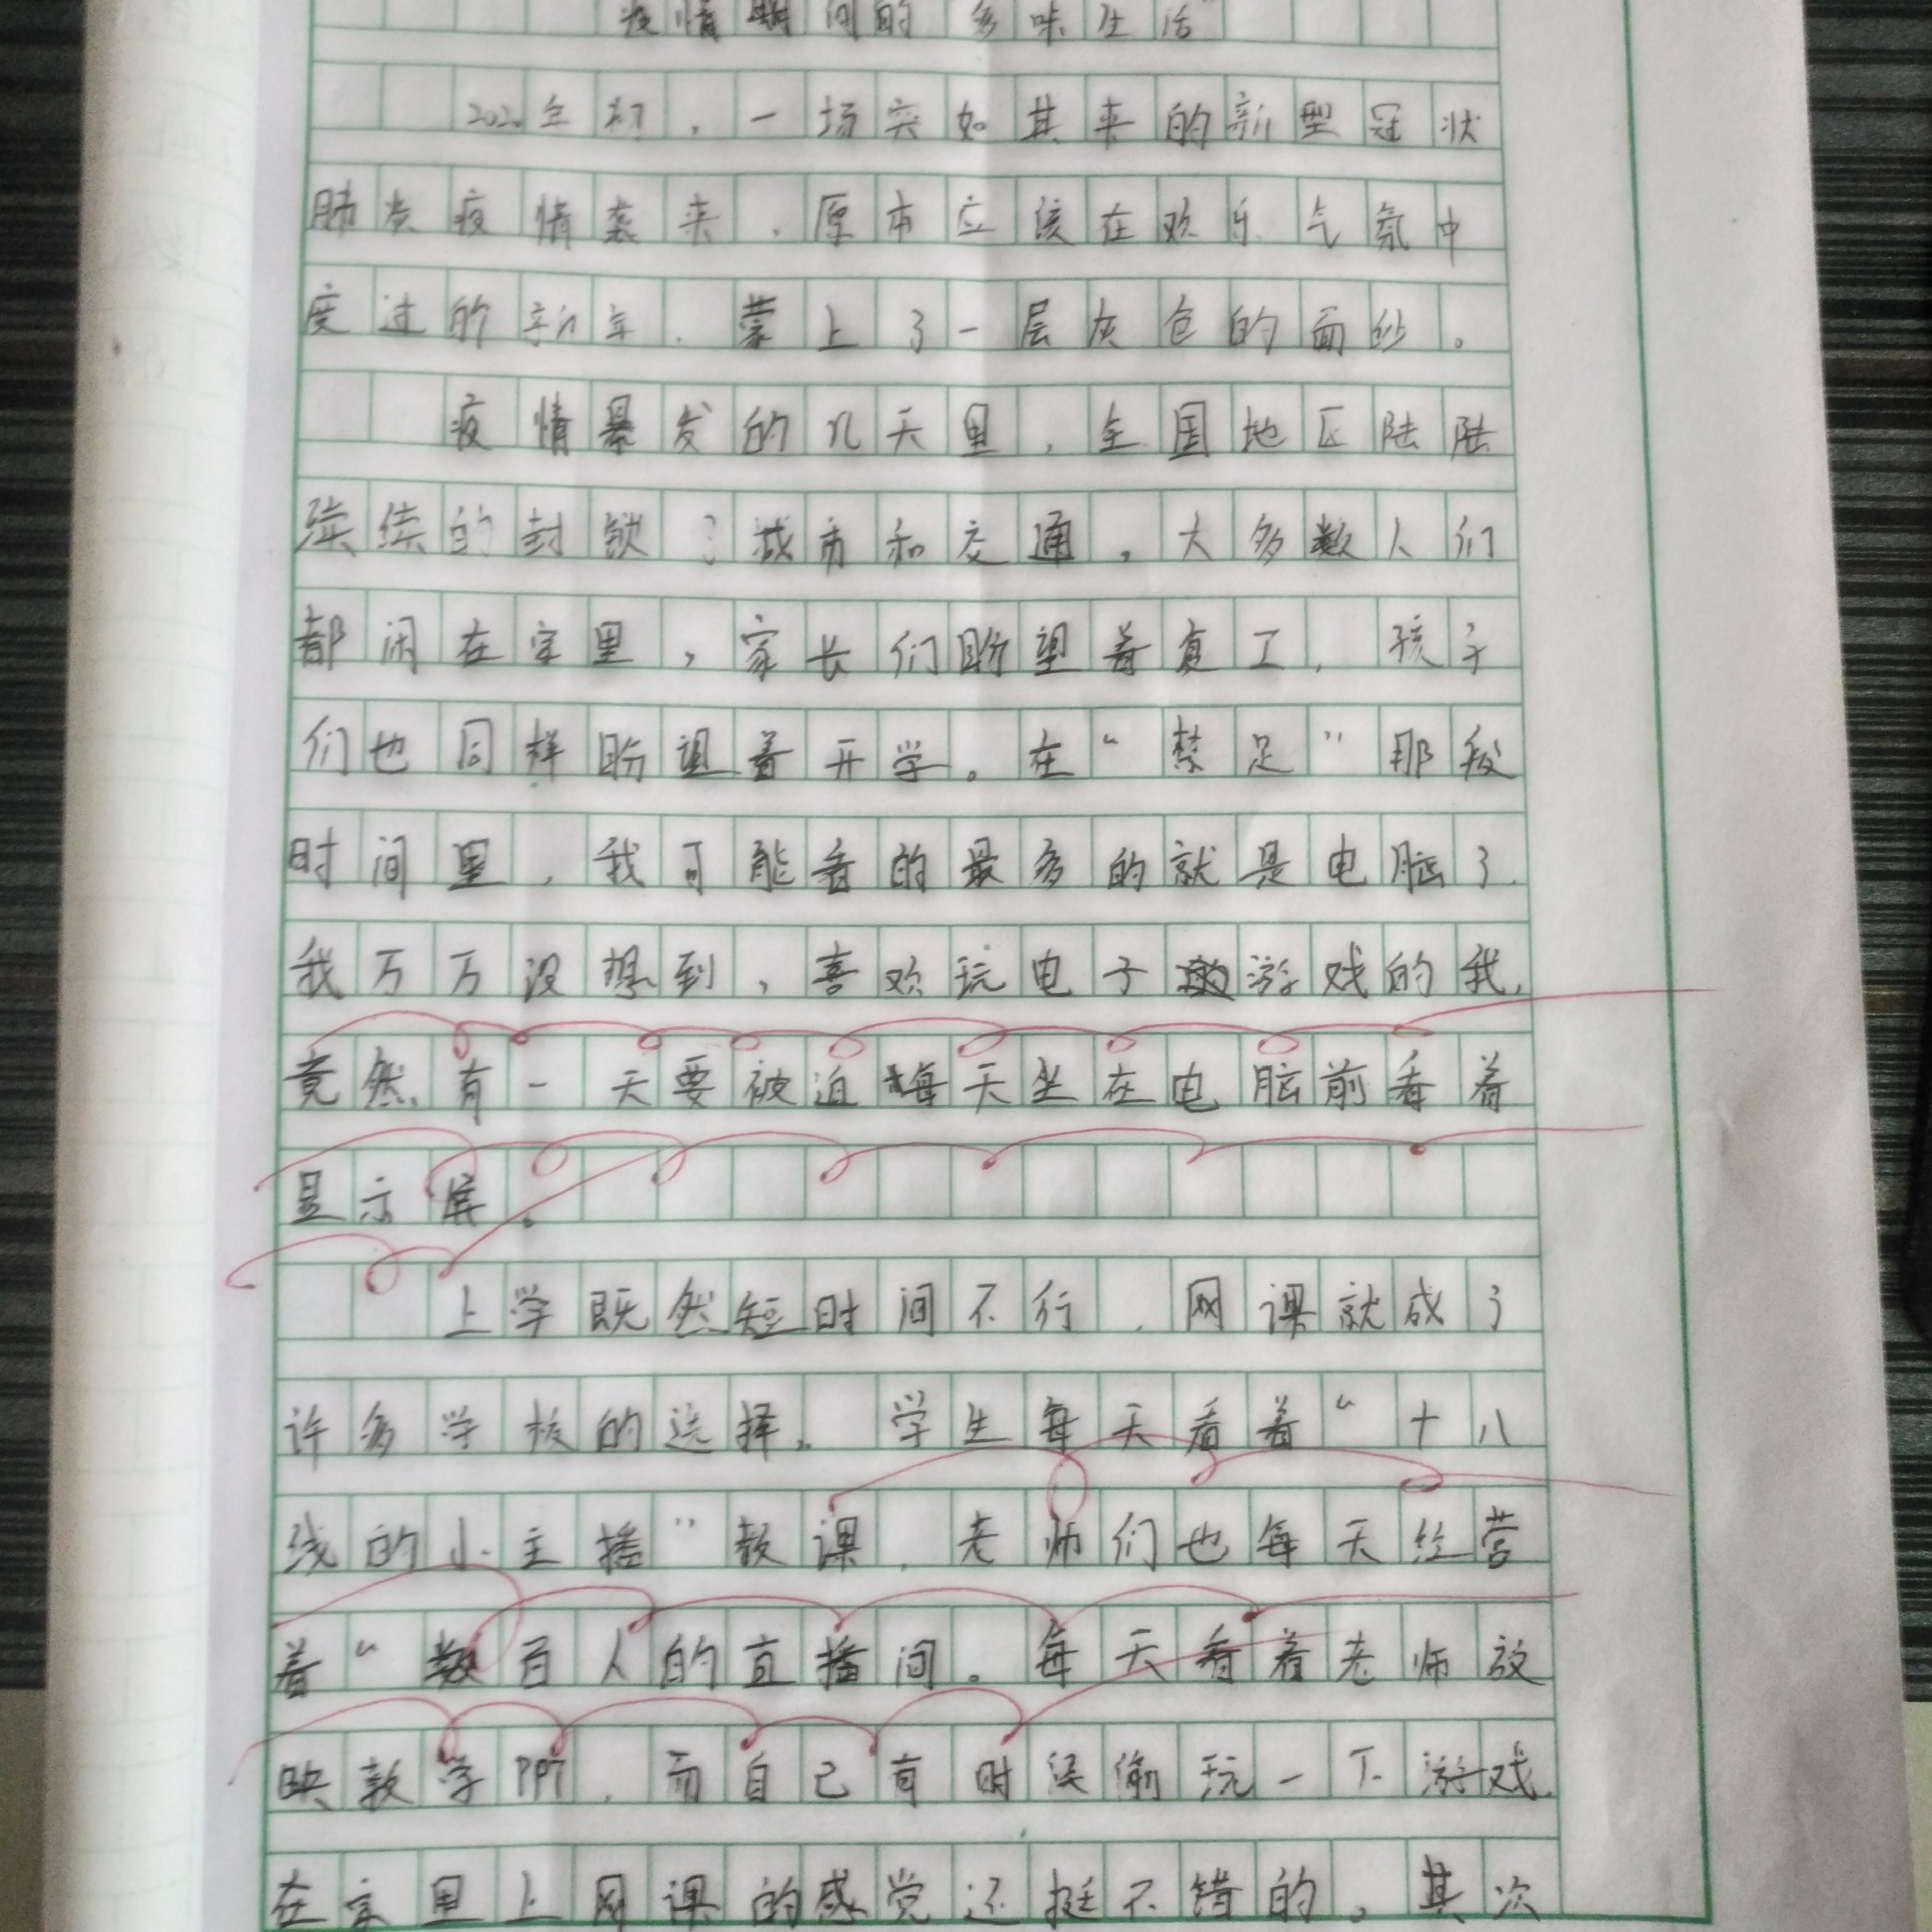 疫情期间的"多味生活"
2020年初，一场突如其来的新型冠状
肺炎疫情袭来，原本应该在欢乐气氛中
度过的新年，蒙上了一层灰色的面纱。
疫情暴发的几天里，全国地区陆陆
续续的封锁了城市和交通，大多数人们
都闲在家里，家长们盼望着复工，孩子
们也同样盼望着开学。在“禁足”那段
时间里，我可能看的最多的就是电脑了．
我万万没想到，喜欢玩电子游戏的我，
竟然有一天要被迫每天坐在电脑前看着
显示屏。
上学既然短时间不行，网课就成了
许多学校的选择，学生每天看着“十八
线的小主播”教课，老师们也每天经营
着“数百人的直播间。每天看着老师放
映教学PPT，而自己有时候偷玩一下游戏，
在家里上网课的感觉还挺不错的。其次